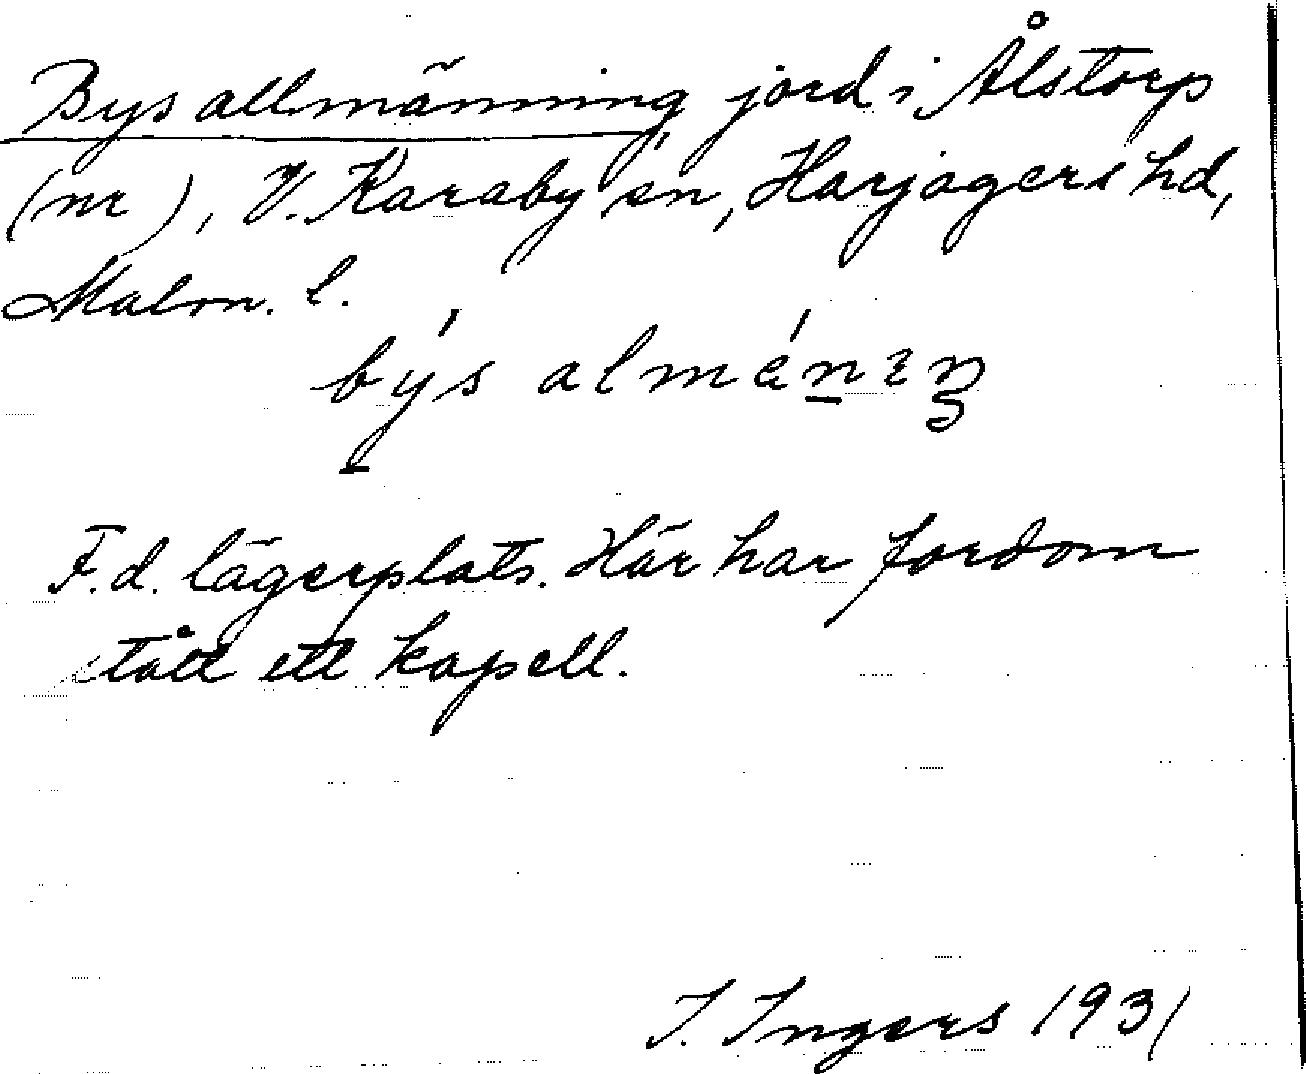 Bys allmänning jord i Ålstorp
(nr ), V. Karaby sn, Harjagers hd,
Malm. l.
býs almǽnıŋ
F.d. lägerplats. Här har fordom
stått ett kapell.
I. Ingers 1931